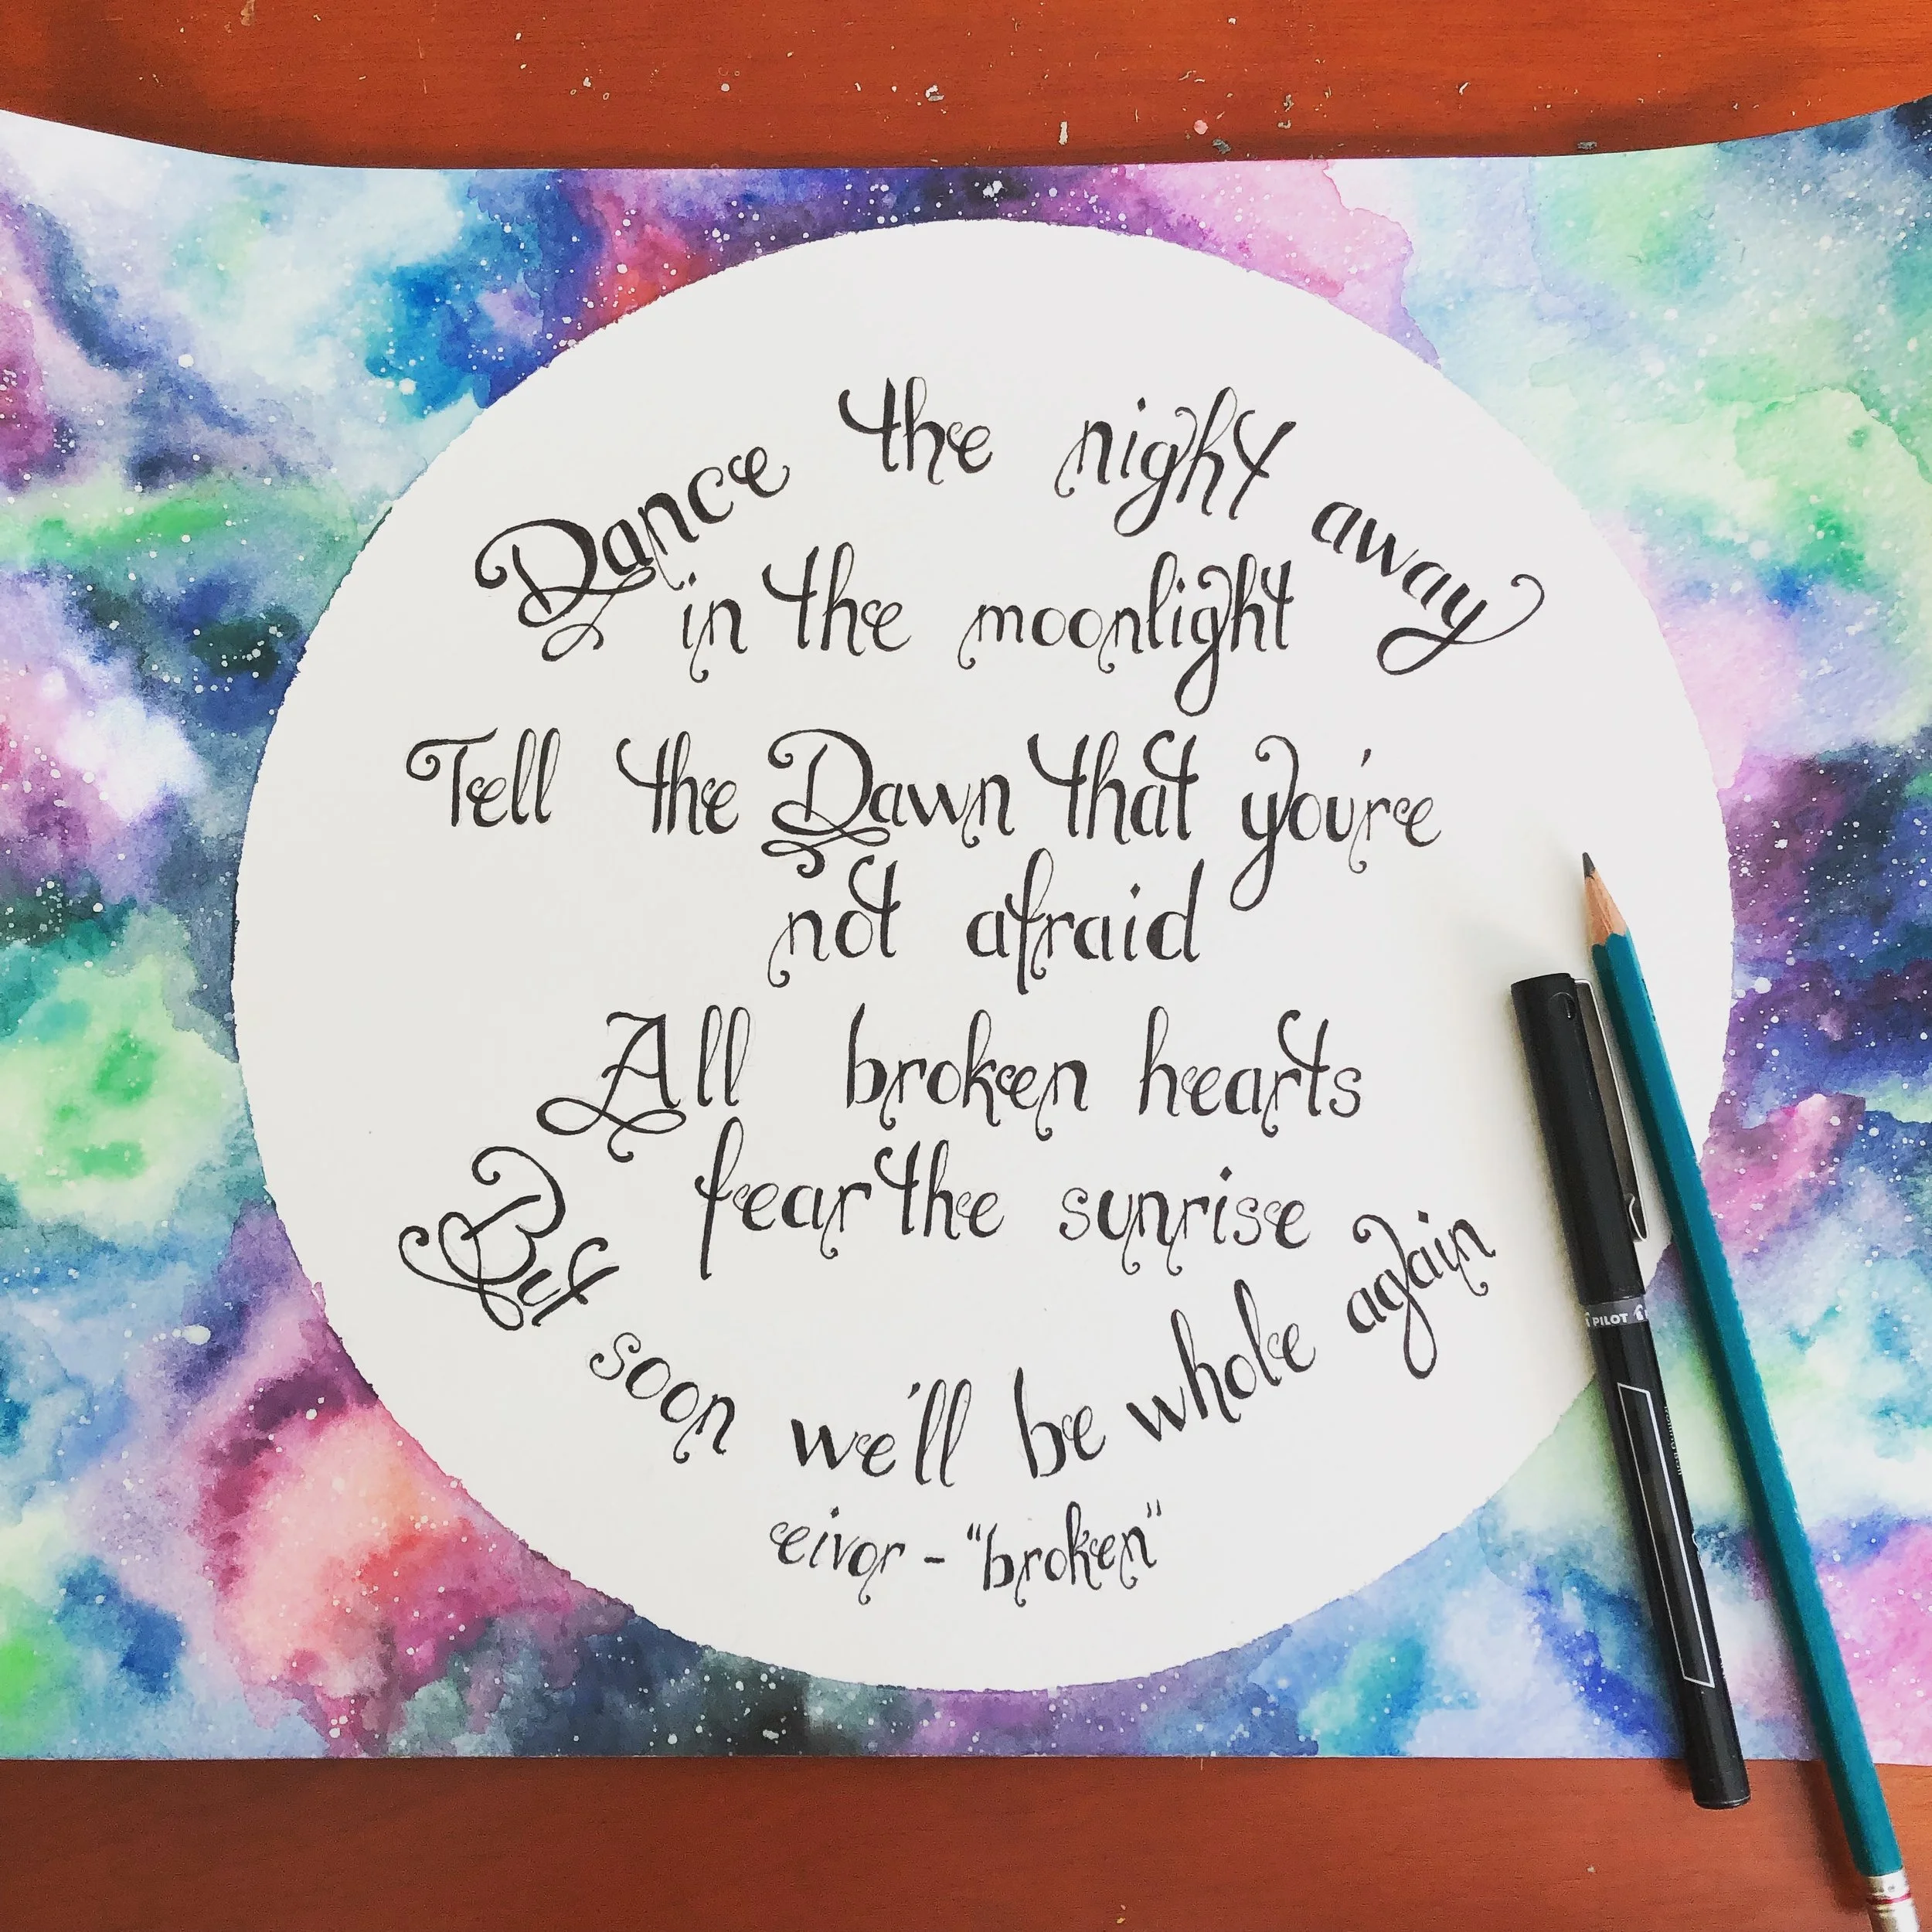 Dance the night away
in the moonlight
Tell the Dawn that you're
not afraid
All broken hearts
fear the sunrise
But soon we'll be whole again
eivor - "broken"
PILOT